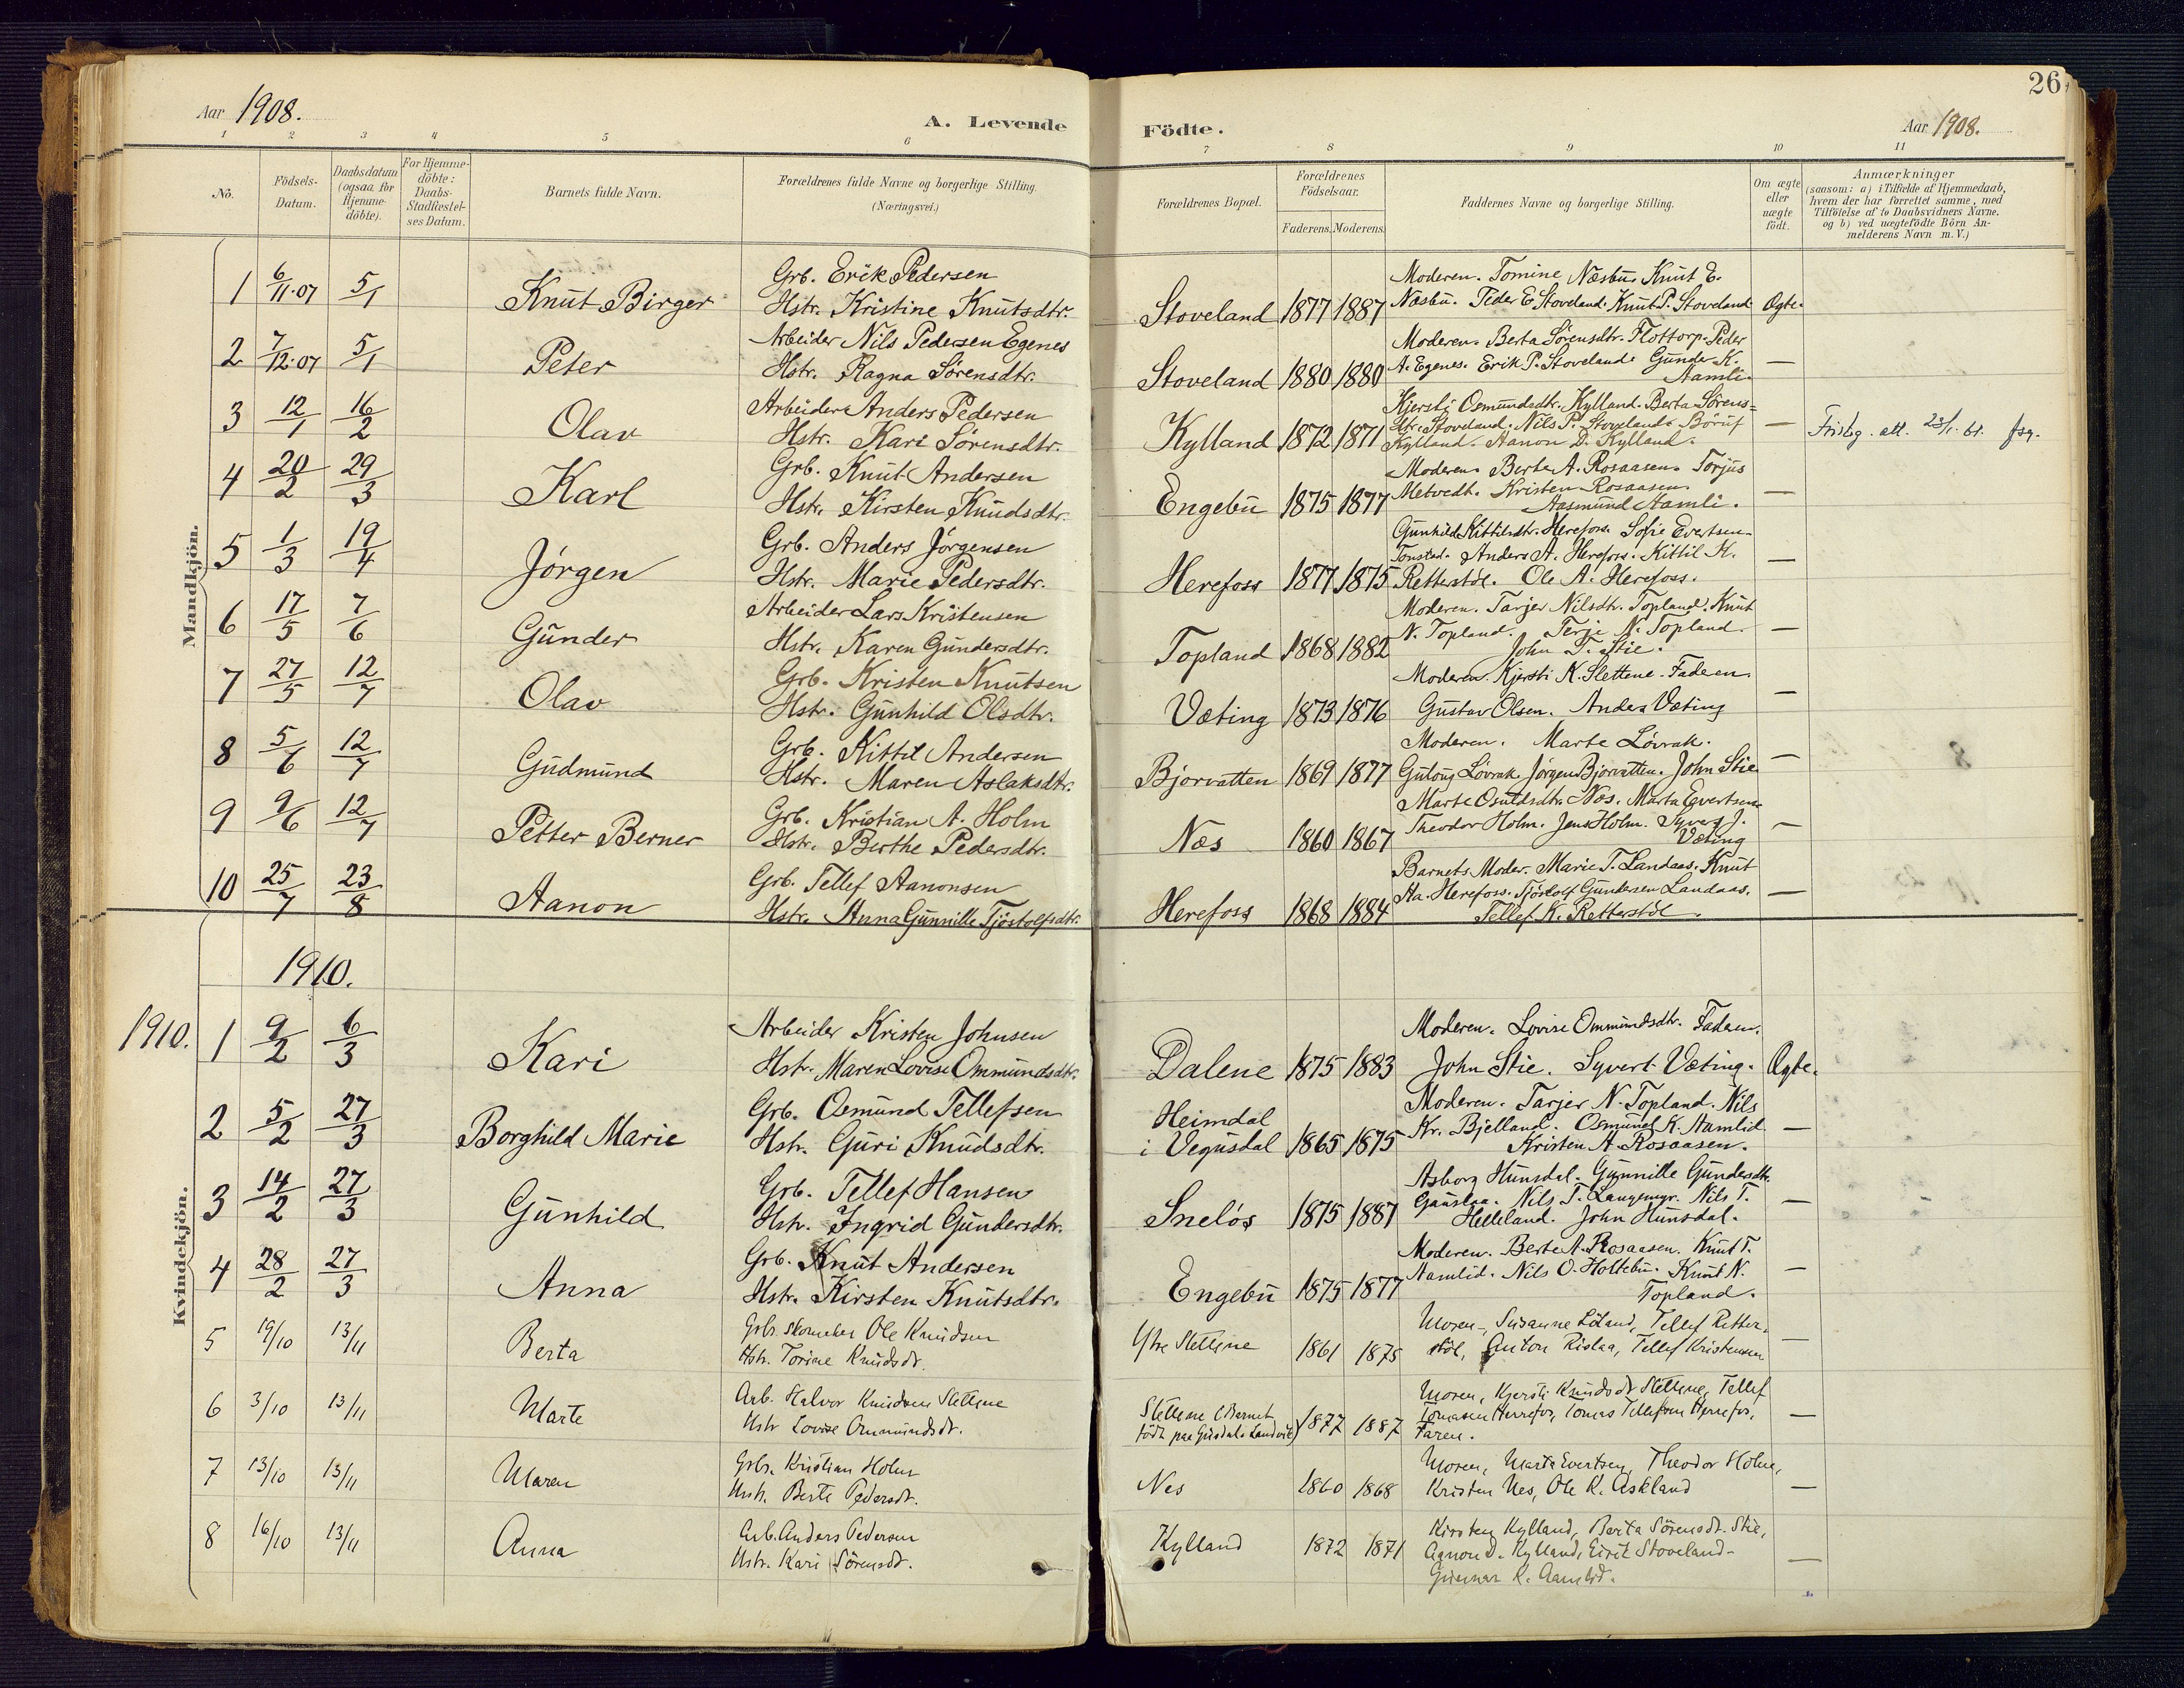 26
Aar 1908.
A. Levende Födte.
Aar 1908.
1 2 3 4 5 6 7 8 9 10 11
Nò.
Födsels-Datum.
Daabsdatum (ogsaa for Hjemme-döbte).
For Hjemme-döbte: Daabs-Stadfæstel-ses Datum.
Barnets fulde Navn.
Forældrenes fulde Navne og borgerlige Stilling. (Næringsvei.)
Forældrenes Bopæl.
Forældrenes Födselsaar.
Faderens. Moderens.
Faddernes Navne og borgerlige Stilling.
Om ægte eller uægte födt.
Anmærkninger
(saasom: a) i Tilfælde af Hjemmedaab,
hvem der har forrettet samme, med
Tilföielse af to Daabsvidners Navne.
og b) ved uægtefödte Börn An-
melderens Navn m. V.)
Mandkjön.
1 6/11.07 5/1 Knut Birger
Grb. Erik Pedersen
Hstr. Kristine Knutsdtr.
Stoveland 1877 1887
Moderen. Tomine Næsbu. Knut E.
Næsbu. Peder E. Stoveland. Knut P. Stoveland.
Ægte.
2 7/12.07 5/1 Peter
Arbeider Nils Pedersen Egenes
Hstr. Ragna Sörensdtr.
Stoveland 1880 1880
Moderen. Berta Sörensdtr. Flottorp. Peder
A. Egenes. Erik P. Stoveland. Gunder K.
Aamli.
—
3 12/1 16/2 Olav
Arbeider Anders Pedersen
Hstr. Kari Sörensdtr.
Kylland 1872 1871
Kjersti Osmundsdtr. Kylland. Berta Sörens=
dtr. Stoveland. Nils P. Stoveland.
Kylland. Aanon D. Kylland.
—
att. 23/1. 61.
4 20/2 29/3 Karl
Grb. Knut Andersen
Hstr. Kirsten Knudsdtr.
Engebu 1875 1877
Moderen. Berte A. Rosaasen. Torjus
Metvedt. Kristen Rosaasen.
Aasmund Aamli.
—
5 1/3 19/4 Jörgen
Grb. Anders Jörgensen
Hstr. Marie Pedersdtr.
Herefoss 1877 1875
Gunhild Kittilsdtr. Herefoss. Sofie Evertsen
Tonstad. Anders A. Herefoss. Kittil K.
Retterstöl. Ole A. Herefoss.
—
6 17/5 7/6 Gunder
Arbeider Lars Kristensen
Hstr. Karen Gundersdtr.
Topland 1868 1882
Moderen. Tarjer Nilsdtr. Topland. Knut
N. Topland. Terje N. Topland.
John T. Stie.
—
7 27/5 12/7 Olav
Grb. Kristen Knutsen
Hstr. Gunhild Olsdtr.
Væting 1873 1876
Moderen. Kjersti K. Slettene. Faderen.
Gustav Olsen. Anders Væting
—
8 5/6 12/7 Gudmund
Grb. Kittil Andersen
Hstr. Maren Aslaksdtr.
Bjorvatten 1869 1877
Moderen. Marte Lövrak.
Gutoug Lövrak. Jörgen Bjorvatten. John Stie
—
9 9/6 12/7 Petter Berner
Grb. Kristian A. Holm
Hstr. Berthe Pedersdtr.
Næs 1860 1867
Marte Osuldsdtr. Næs. Marta Evertsen.
Theodor Holm. Jens Holm. Syvert J.
Væting
—
10 25/7 23/8 Aanon
Grb. Tellef Aanonsen
Hstr. Anna Gunnille Tjöstolfsdtr.
Herefoss 1868 1884
Barnets Moder. Marie T. Landaas. Knut
Aa. Herefoss. Tjöstolf Gundersen Landaas.
Tellef K. Retterstöl.
—
1910.
1910.
Kvindekjön.
1 9/2 6/3 Kari
Arbeider Kristen Johnsen
Hstr. Maren Lovise Ommundsdtr.
Dalene 1875 1883
Moderen. Lovise Ommundsdtr. Faderen.
John Stie. Syvert Væting.
Ægte.
2 5/2 27/3 Borghild Marie
Grb. Osmund Tellefsen
Hstr. Guri Knudsdtr.
Heimdal
i Vegusdal 1865 1875
Moderen. Tarjer N. Topland. Nils
Kr. Bjelland. Osmund K. Aamlid.
Kristen A. Rosaasen.
—
3 14/2 27/3 Gunhild
Grb. Tellef Hansen
Hstr. Ingrid Gundersdtr.
Snelös 1875 1887
Asborg Hunsdal. Gunnille Gundersdtr.
Gauslaa. Nils T. Langemyr. Nils T.
Helleland. John Hunsdal.
—
4 28/2 27/3 Anna
Grb. Knut Andersen
Hstr. Kirsten Knutsdtr.
Engebu 1875 1877
Moderen. Berte A. Rosaasen. Knut T.
Aamlid. Nils O. Holtebu. Knut N.
Topland.
—
5 19/10 13/11 Berta
Grbr. skomaker Ole Knudsen
Hstr. Torine Knudsdt.
Ytre Slettene 1861 1875
Moren, Susanne Löland, Tellef Retter-
stöl, Anton Rislaa, Tellef Kristensen
—
6 3/10 13/11 Marte
Arb. Halvor Knudsen Slettene
Hstr Lovise Ommundsdt.
Slettene (Barnet
födt paa Landvik) 1877 1887
Moren, Kjersti Knudsdt Slettene, Tellef
Tomasen Herrefos, Tomas Tellefsen Herrefos,
Faren.
—
7 13/10 13/11 Maren
Grbr. Kristian Holm
Hstr. Berte Pedersdt.
Nes 1860 1868
Moren, Marte Evertsen, Theodor Holm,
Kristen Nes, Ole K. Askland
—
8 16/10 13/11 Anna
Arb. Anders Pedersen
Hstr. Kari Sörensdt.
Kylland 1872 1871
Kirsten Kylland, Berta Sörensdt. Stie,
Aanon D. Kylland, Eirik Stoveland-
Gunnar K. Aamlid.
—